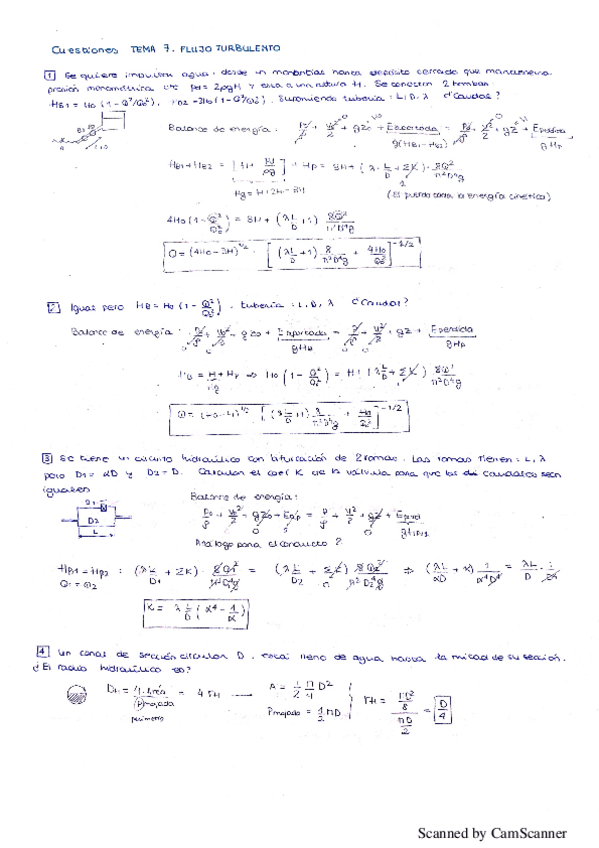 Cuestiones TEMA 7. FLUJO TURBULENTO
1 Se quiere impulsar agua desde un manantial hasta depósito cerrado que mantiene una
presión manométrica de Pd = 2ρgH y está a una altura H. Se conectan 2 bombas
HB1 = Ho (1 - Q²/Qo²), HB2 = 3Ho (1 - Q²/Qo²). Suponiendo tubería: L, D, λ ¿Caudal?
Balance de energía:
g(HB1+HB2)
gHp
HB1 + HB2 = [H + Pd/ρg] + Hp = 3H + (λ L/D + ΣK) · 8Q²/π²D⁴g
(Se pierde toda la energía cinética)
4Ho (1 - Q²/Qo²) = 3H + (λL/D + 1) 8Q²/π²D⁴g
Q = (4Ho - 3H)^1/2 · [(λL/D + 1) 8/π²D⁴g + 4Ho/Qo²]^-1/2
2 Igual pero HB = Ho (1 - Q²/Qo²), tubería: L, D, λ ¿Caudal?
Balance de energía:
gHB
gHp
HB = H + Hp ⇒ Ho (1 - Q²/Qo²) = H + (λ L/D + ΣK) 8Q²/π²D⁴g
Q = (Ho - H)^1/2 [(λ L/D + 1) 8/π²D⁴g + Ho/Qo²]^-1/2
3 Se tiene un circuito hidráulico con bifurcación de 2 ramas. Las ramas tienen: L, λ
pero D1 = αD y D2 = D. Calcular el coef K de la válvula para que los caudales sean
iguales
D1
D2
L
Balance de energía:
Análogo para el conducto 2
Hp1 = Hp2 : (λ L/D1 + ΣK) · 8Q1²/π²D1⁴g = (λ L/D2 + ΣK) 8Q2²/π²D2⁴g ⇒
Q1 = Q2
K = λ L/D (α⁴ - 1/α)
4 Un canal de sección circular D, está lleno de agua hasta la mitad de su sección.
¿El radio hidráulico es?
DH = 4·Área/Pmojada = 4rH
perímetro
A = 1/2 π/4 D²
Pmojado = 1/2 πD
rH = (πD²/8)/(πD/2) = D/4
Scanned by CamScanner